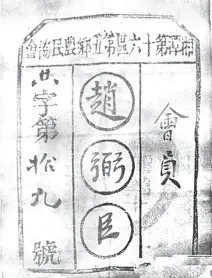 湘潭第十六區第五鄉農民協會
會員
趙弼臣
字第拾九號